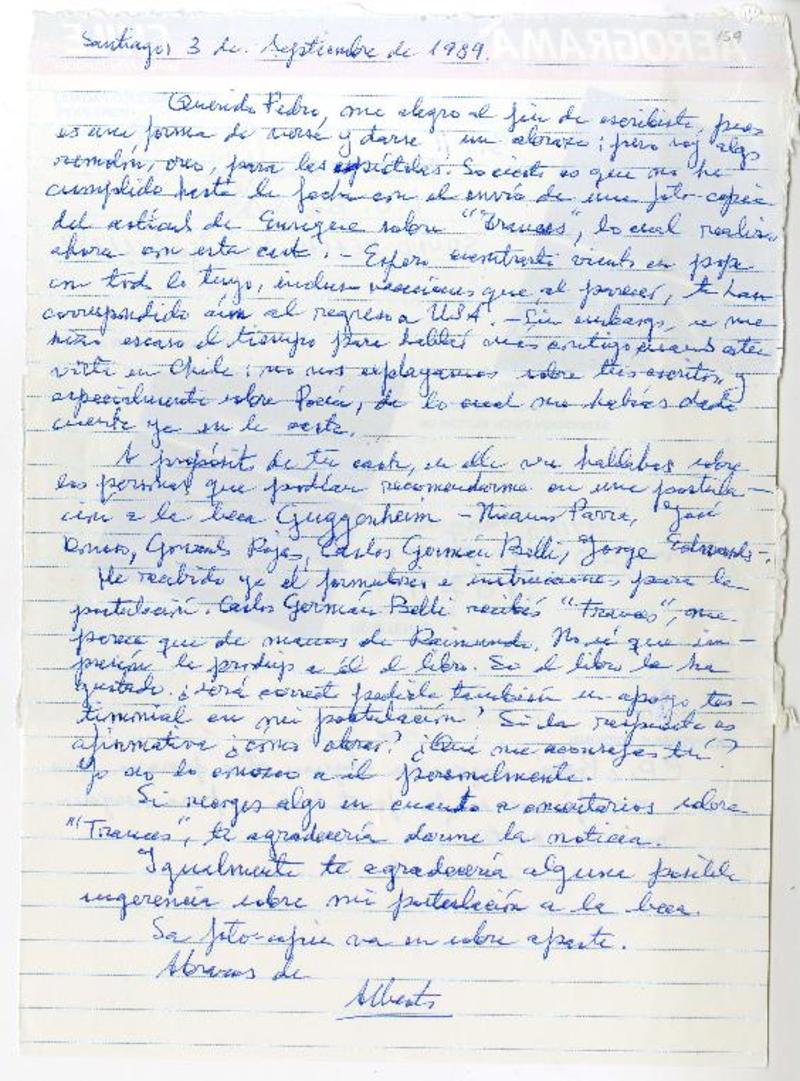 AEROGRAMA
CHILE
159
Santiago, 3 de Septiembre de 1989.
Querido Pedro, me alegro al fin de escribirte, pues
es una forma de verse y darse un abrazo; pero soy algo
remolón, creo, para las epístolas. Lo cierto es que no he
cumplido hasta la fecha con el envío de una foto-copia
del artículo de Enrique sobre "Trances", lo cual realizo
ahora con esta carta. - Espero encontrarte viento en popa
con todo lo tuyo, incluso vacaciones que, al parecer, te han
correspondido aún al regreso a USA. - Sin embargo, se me
hizo escaso el tiempo para hablar más contigo cuando estu-
viste en Chile; no nos explayamos sobre tus escritos, y
especialmente sobre Poesía, de lo cual me habías dado
cuenta ya en la carta.
A propósito de tu carta, en ella me hablabas sobre
las personas que podían recomendarme en una postula-
ción a la beca Guggenheim - Nicanor Parra, José
Donoso, Gonzalo Rojas, Carlos Germán Belli, Jorge Edwards -.
He recibido ya el formulario e instrucciones para la
postulación. Carlos Germán Belli recibió "Trances", me
parece que de manos de Raimundo. No sé que im-
presión le produjo a él el libro. Si el libro le ha
gustado, ¿será correcto pedirle también un apoyo tes-
timonial en mi postulación? Si la respuesta es
afirmativa ¿cómo obrar? ¿Qué me aconsejas tú?
Yo no lo conozco a él personalmente.
Si recoges algo en cuanto a comentarios sobre
"Trances", te agradecería darme la noticia.
Igualmente te agradecería alguna posible
sugerencia sobre mi postulación a la beca.
La foto-copia va en sobre aparte.
Abrazos de
Alberto